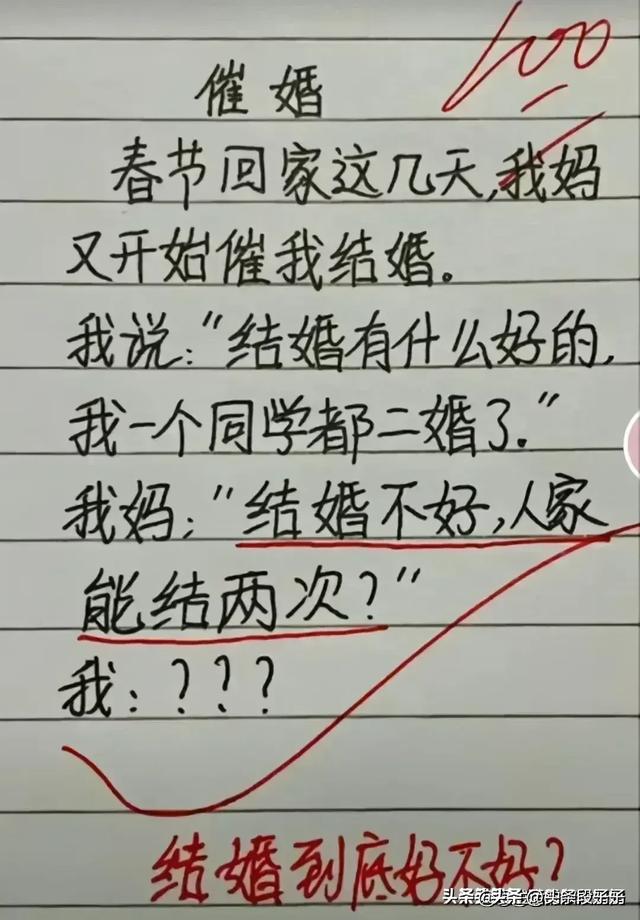 100
催婚
春节回家这几天,我妈
又开始催我结婚。
我说:"结婚有什么好的,
我一个同学都二婚了."
我妈:"结婚不好,人家
能结两次?"
我:???
结婚到底好不好?